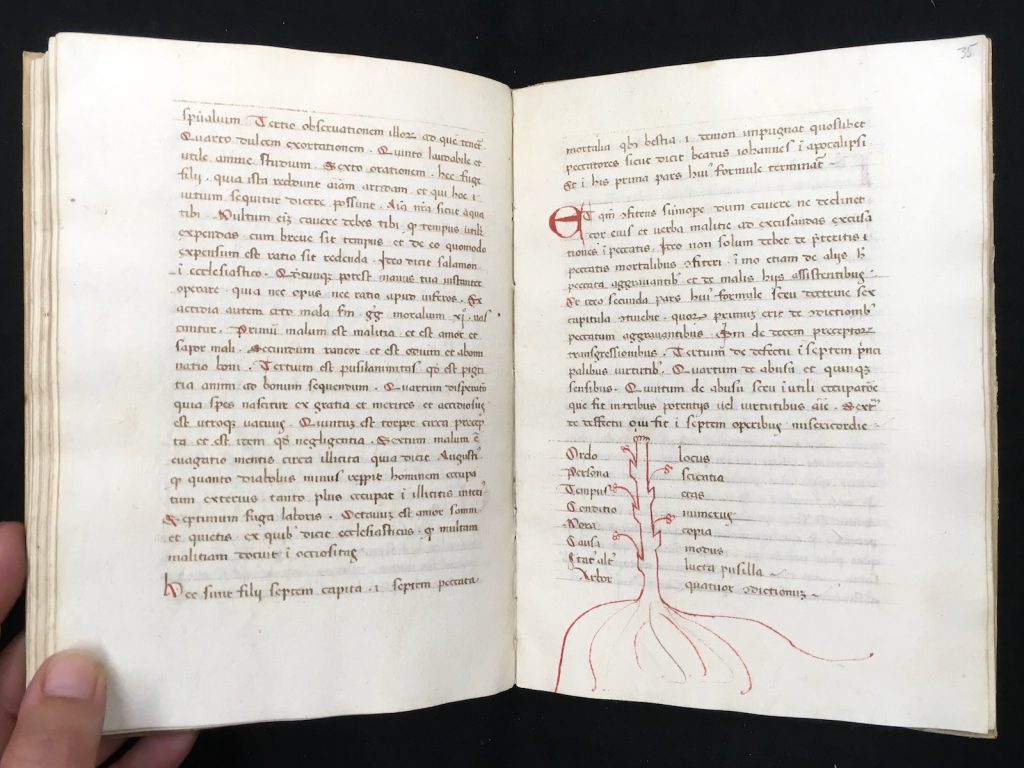 spūalium Tertio observationem illor ad que tenet
Quarto dulcem exortationem . Quinto laudabile et
utile anime studium . Sexto orationem . hec fuge
fili . quia ista reddunt aiam arridam . et qui hoc i
iutum sequitur dicere possunt . Aia mea sicut aqua
tibi . Multum eiz cavere debes tibi . ꝙ tempus utilit
expendas cum breve sit tempus et de eo quomodo
expensum est ratio sit reddenda . Ideo dicit salamon
i ecclesiastico . potest manus tua instanter
operare . quia nec opus nec ratio apud inferos . Ex
accidia autem octo mala fm . gg moralium xxj . nas
cuntur . Primū malum est malitia . et est amor et
sapor mali . Secundum rancor . et est odium et abom
natio boni . Tertium est pusilanimitas qd est pigri
tia animi ad bonum sequendum . Quartum disperatio
quia spes nascitur ex gratia et meritis . et accidiosus
est utroqe vacuus . Quintus est torpor circa precep
ta . et est item qd negligentia . Sextum malum ē
evagatio mentis circa illicita . quia dicit Augusti
ꝙ quanto diabolus minus reppit hominem occupa
tum exterius tanto plus occupat i illicitis interi
Septimum fuga laboris . Octavuz est amor somni
et quietis . ex quib dicit ecclesiasticus . ꝙ multam
malitiam docuit i occiositas
Hec sunt filii septem capita . i . septem peccata
35
mortalia qb bestia . i . demon impugnat quoslibet
peccatores sicut dicit beatus iohannes i apocalipsi
Et i his prima pars hui formule terminat
ET qm ɔfitens sumope dum cavere ne declinet
cor eius et verba malitie ad excusandas excusa
tiones i peccatis . Ideo non solum debet de pteritis i
peccatis mortalibus ɔfiteri . imo etiam de alijs
peccata aggravantib et de malis hijs assistentibus
Et ideo secunda pars hui formule seu doctrine sex
capitula ɔtinebit . quor primus erit de ɔditionib
peccatum aggravantibus . Sm de decem preceptor
transgressionibus . Tertium de defectu i septem pnci
palibus virtutib . Quartum de abusu et quinqz
sensibus . Quintum de abusu seu i utili occupatoe
que fit in tribus potentijs vel virtutibus aie . Sextum
de deffectu qui fit i septem operibus misericordie
Ordo locus
Persona scientia
Tempus etas
Conditio numerus
Hora copia
Causa modus
Stat alt lucta pusilla
Arbor quatuor ɔdictionuz